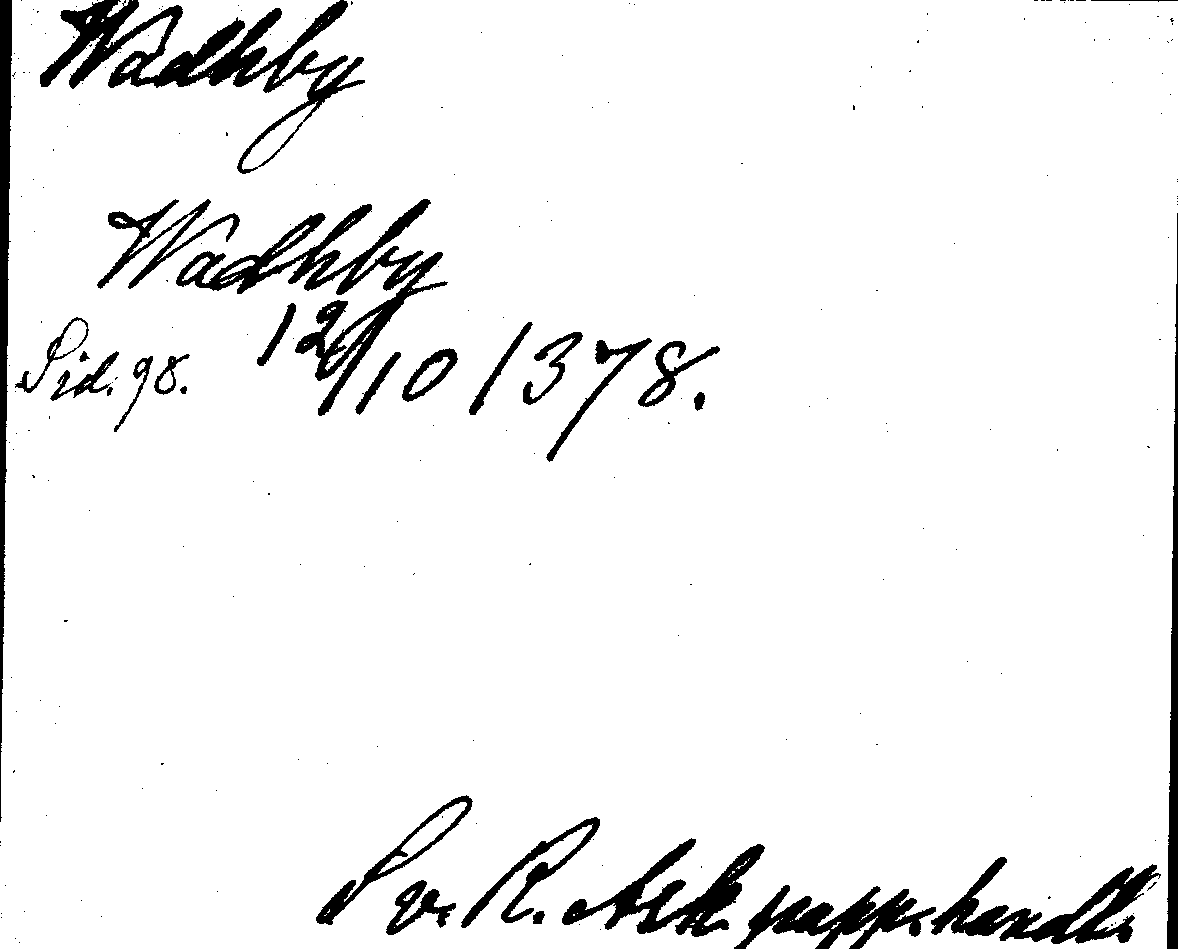 Wadhby
Wadhby
Sid. 98. 12/10 1378.
Sv. R. Ark. papp. handl.